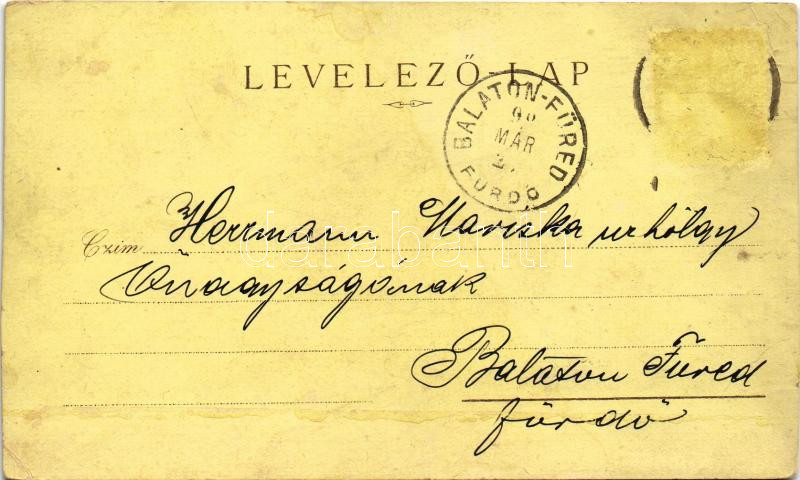 LEVELEZŐ LAP
BALATON-FÜRED
98
MÁR
FÜRDŐ
Czim Herrmann Mariska urhölgy
Őnagyságának
Balaton Füred
fürdő
darabanth